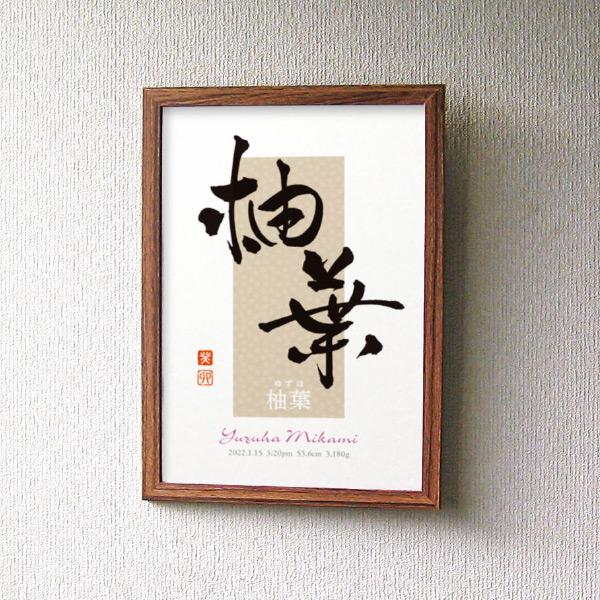 柚葉
癸
卯
ゆずは
柚葉
Yuzuha Mikami
2022.1.15 3:20pm 53.6cm 3,180g